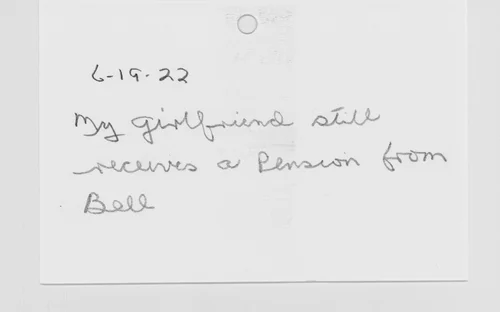 6-19-22
My girlfriend still
receives a Pension from
Bell